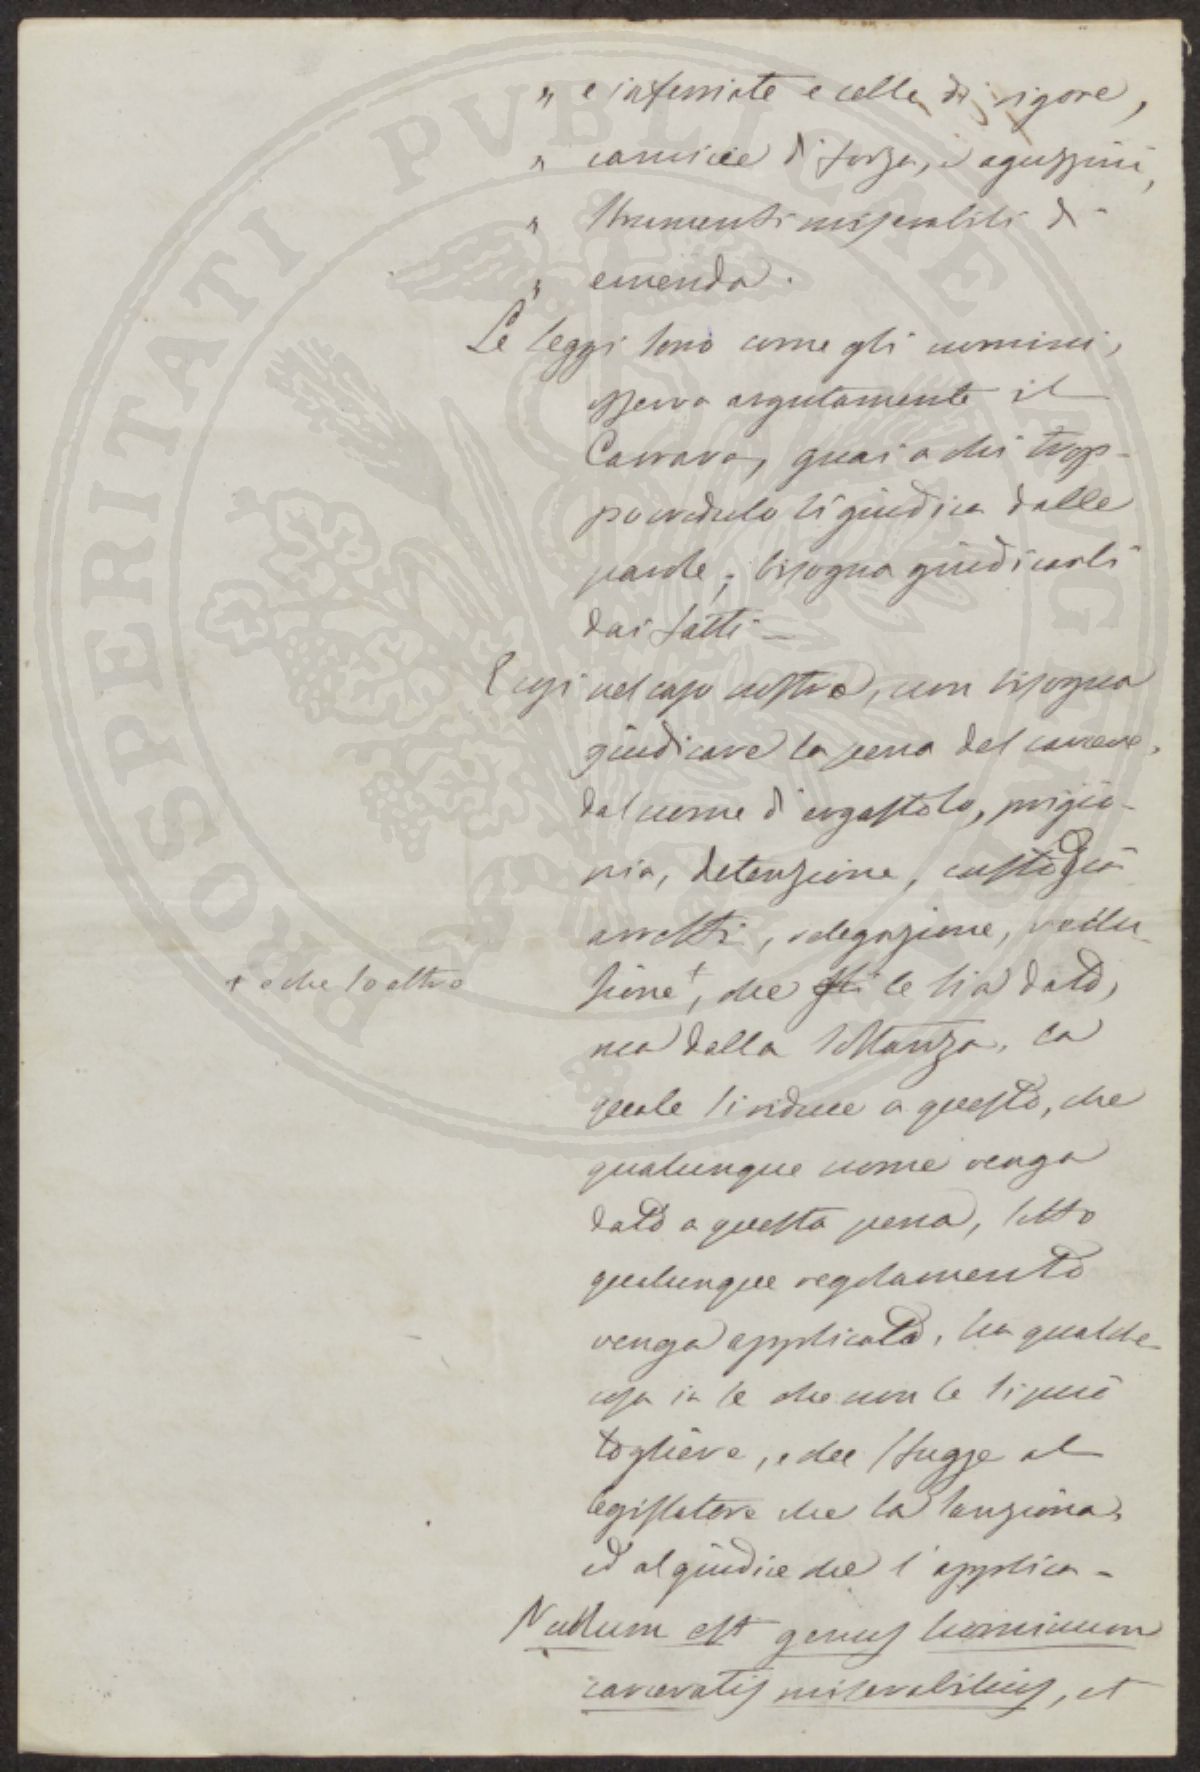 " e inferriate e celle di rigore,
" camicie di forza, e aguzzini,
" strumenti miserabili di
" emenda.
Le leggi sono come gli uomini,
osserva argutamente il
Carrara, guai a chi trop-
po credulo li giudica dalle
parole; bisogna giudicarli
dai fatti —
E così nel caso nostro, non bisogna
giudicare la pena del carcere,
dal nome di ergastolo, prigio-
nia, detenzione, custodia
arresti, relegazione, reclu-
sione +, che le sia dato,
+ o che so altro
ma dalla sostanza, la
quale si riduce a questo, che
qualunque nome venga
dato a questa pena, sotto
qualunque regolamento
venga applicata, ha qualche
cosa in se che non le si può
togliere, e che sfugge al
legislatore che la sanziona,
ed al giudice che l'applica -
Nullum est genus hominum
carceratis miserabilius, et
PROSPERITATI PVBLICAE AVGENDAE